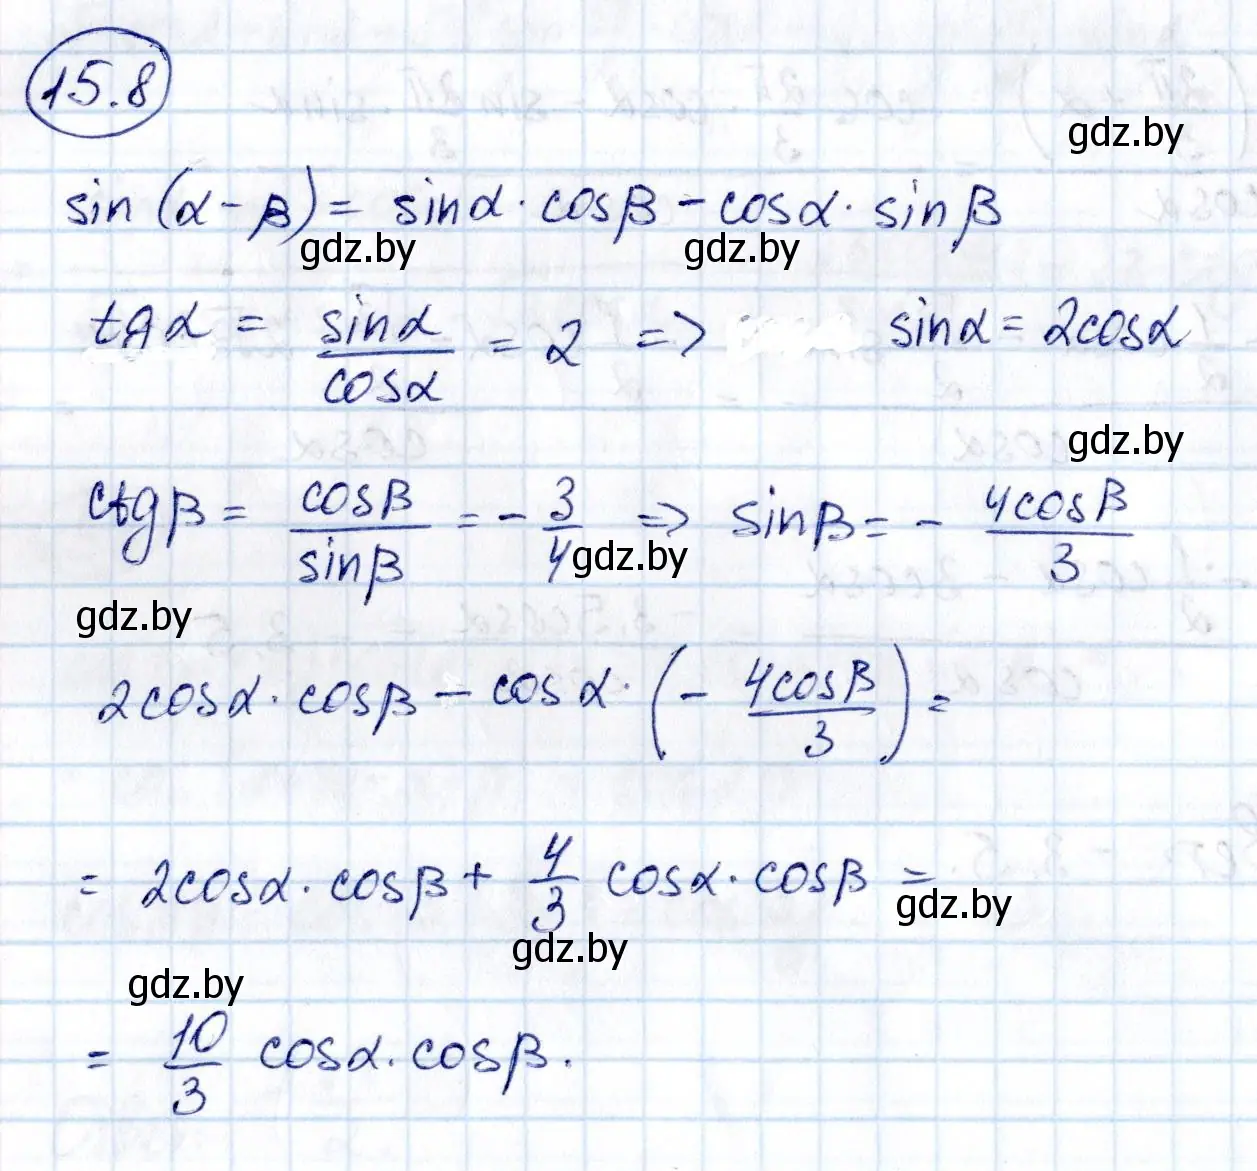 15.8
gdz.by
sin(α-β) = sinα · cosβ - cosα · sinβ
gdz.by gdz.by
tgα = sinα/cosα = 2 => sinα = 2cosα
gdz.by
ctgβ = cosβ/sinβ = - 3/4 => sinβ = - 4cosβ/3
gdz.by
gdz.by
2cosα · cosβ - cosα · (- 4cosβ/3) =
= 2cosα · cosβ + 4/3 cosα · cosβ =
gdz.by
gdz.by
gdz.by
= 10/3 cosα · cosβ.